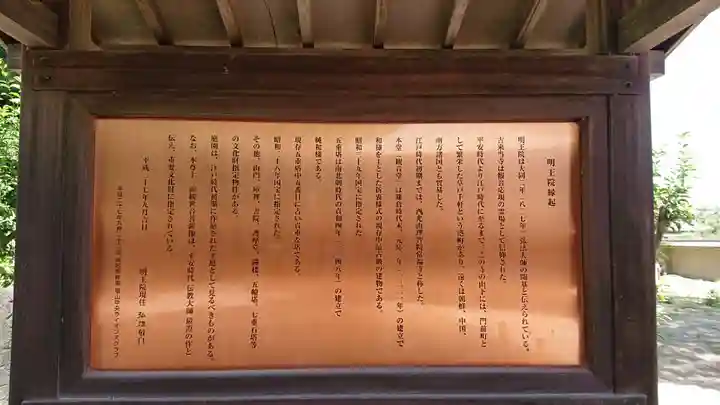 明王院縁起
明王院は大同二年（八〇七年）弘法大師の開基と伝えられている。
古来当寺は観音応現の霊場として信仰された。
平安時代より江戸時代に至るまで、この寺の山下には、門前町と
して繁栄した草戸千軒という港町があり、遠くは朝鮮、中国、
南方諸国とも貿易した。
江戸時代初期までは、西光山理智院常福寺と称した。
本堂（観音堂）は鎌倉時代末、元応三年（一三二一年）の建立で
和様を主とした折衷様式の現存中最古級の建物である。
昭和三十九年国宝に指定された
五重塔は南北朝時代の貞和四年（一三四八年）の建立で
純和様である。
現存五重塔中五番目に古い貴重な塔である。
昭和二十八年国宝に指定された。
その他、山門、庫裡、書院、護摩堂、鐘楼、五輪塔、七重石塔等
の文化財指定物件がある。
庭園は、江戸時代初期に作庭された手法として見るべきものがある。
なお、本尊十一面観世音菩薩像は、平安時代 伝教大師 最澄の作と
伝え、重要文化財に指定されている
平成二十七年九月六日
明王院現住
敬白